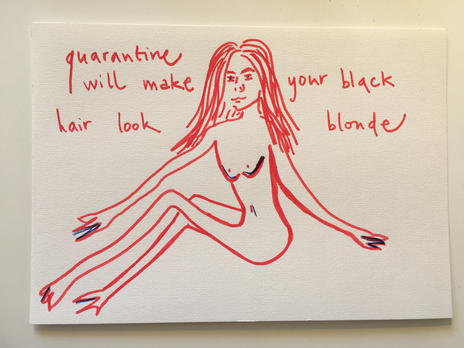 quarantine
will make your black
hair look blonde